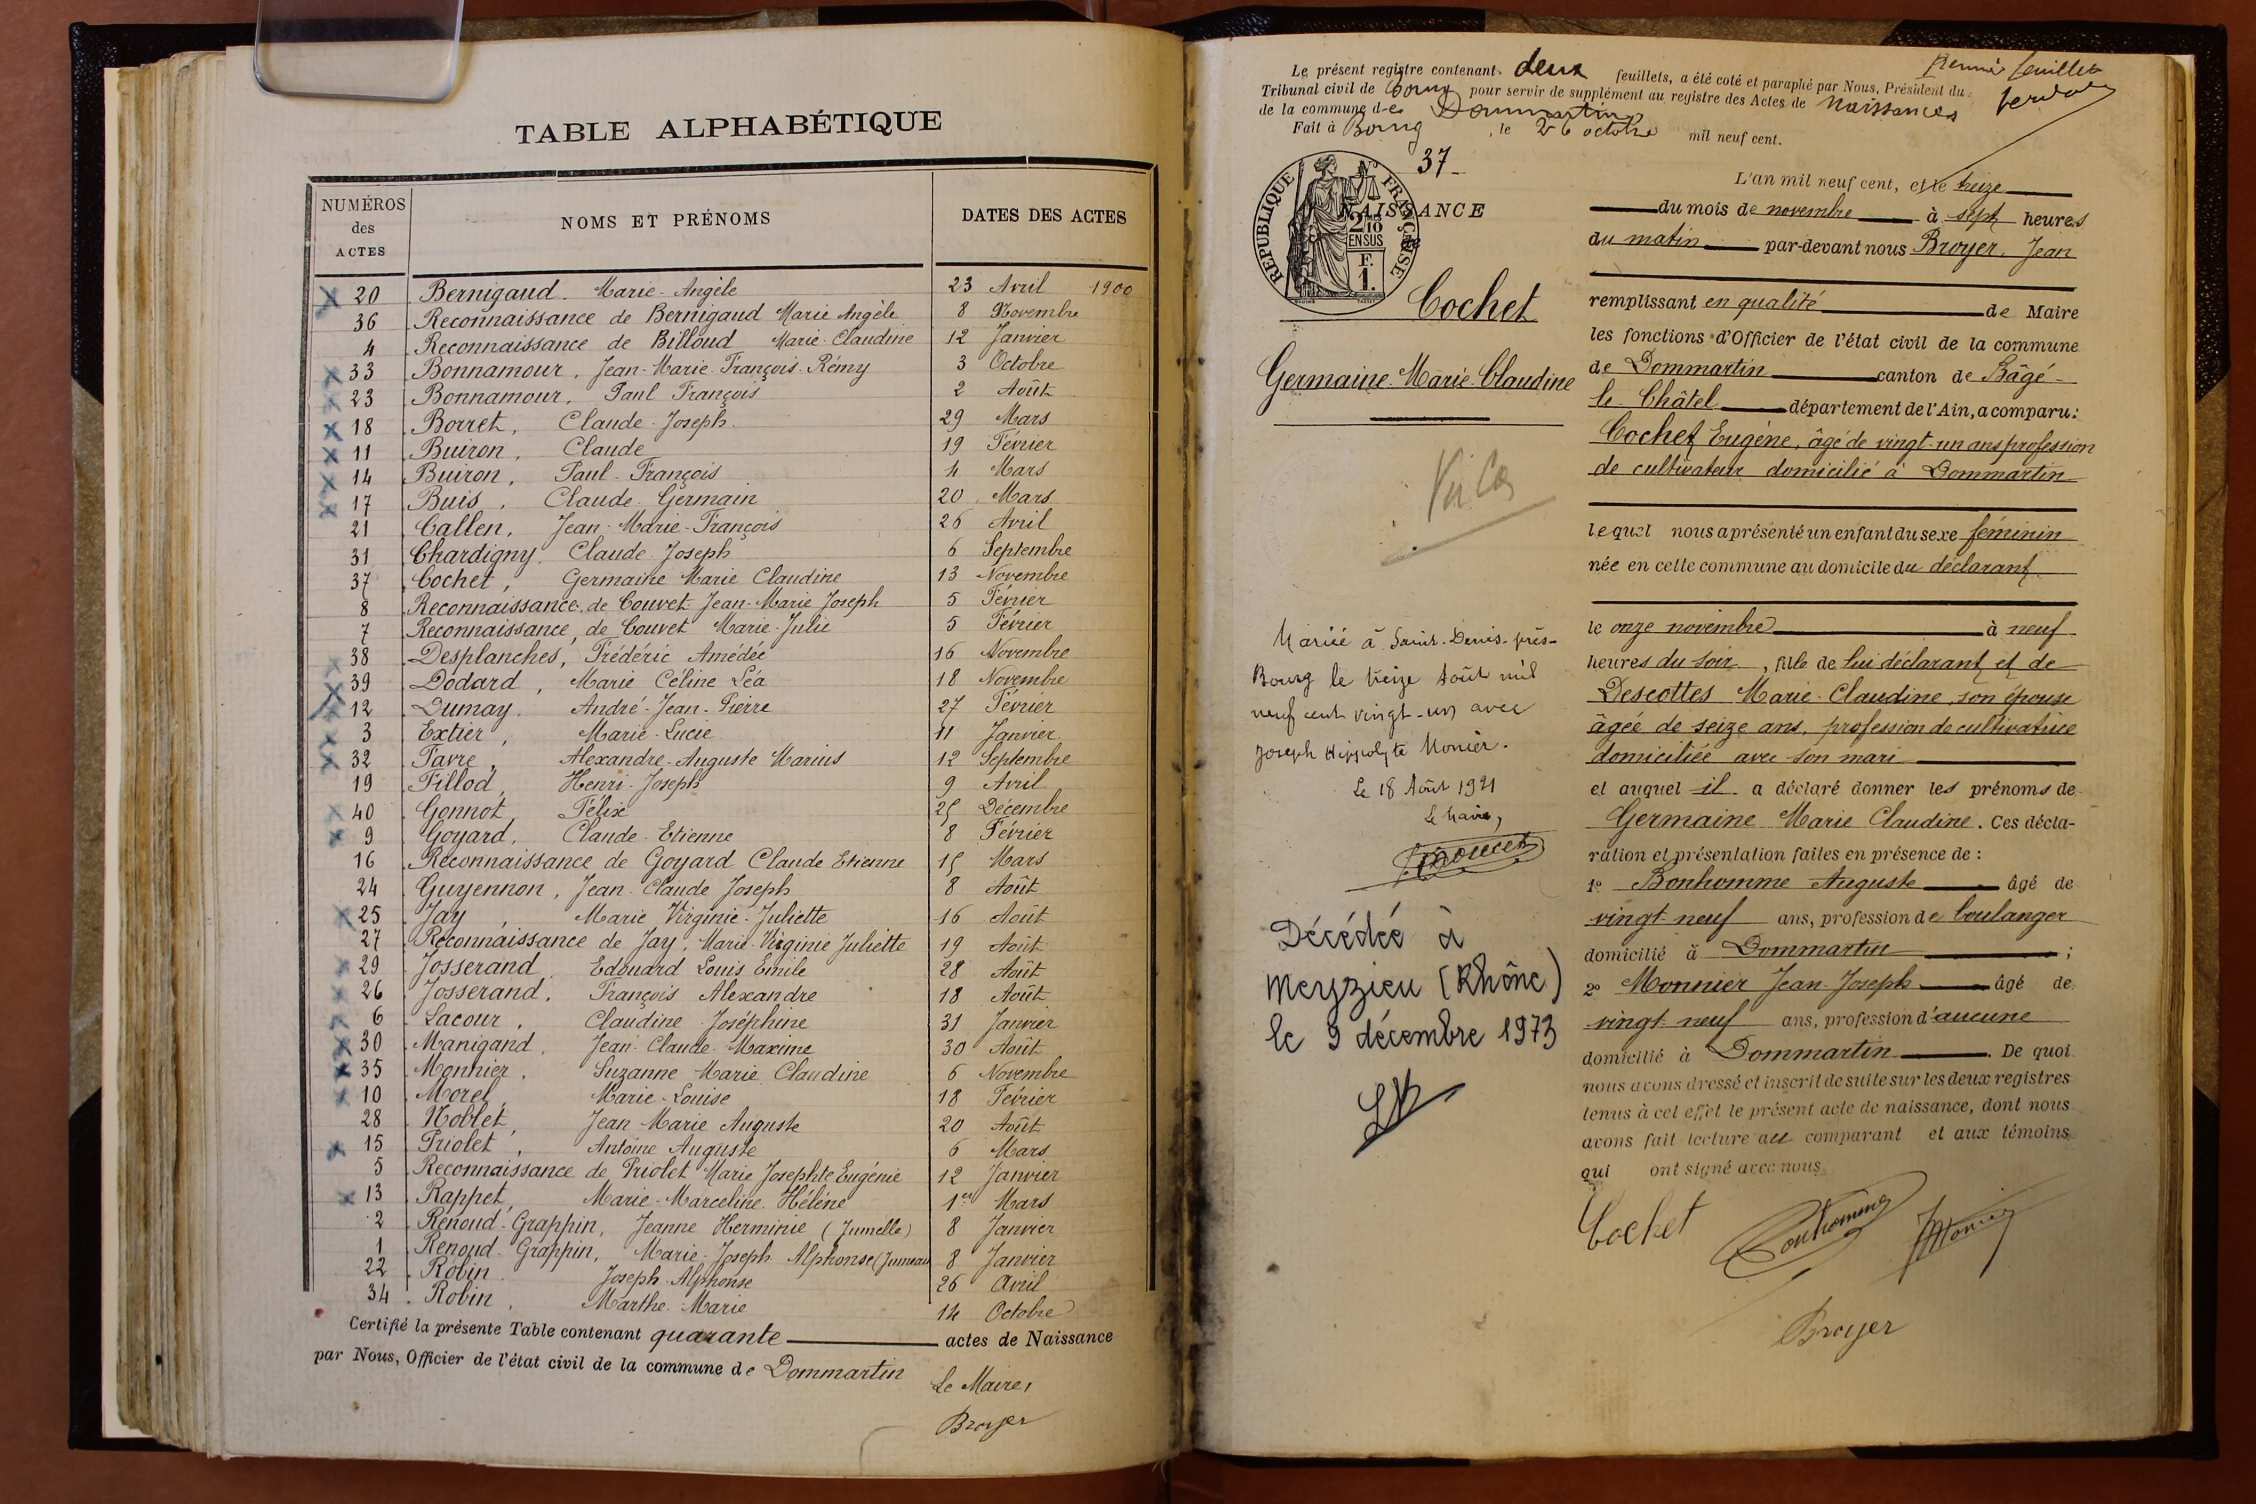 TABLE ALPHABÉTIQUE
NUMÉROS des ACTES
NOMS ET PRÉNOMS
DATES DES ACTES
20 Bernigaud. Marie-Angèle 23 Avril 1900
36 Reconnaissance de Bernigaud Marie Angèle 8 Novembre
4 Reconnaissance de Billoud Marie-Claudine 12 Janvier
33 Bonnamour, Jean-Marie-François-Rémy 3 Octobre
23 Bonnamour, Paul François 2 Août
18 Borret, Claude-Joseph 29 Mars
11 Buiron, Claude 19 Février
14 Buiron, Paul-François 4 Mars
17 Buis, Claude-Germain 20 Mars
21 Callen, Jean-Marie-François 26 Avril
31 Chardigny. Claude Joseph 6 Septembre
37 Cochet, Germaine Marie Claudine 13 Novembre
8 Reconnaissance de Couvet Jean-Marie Joseph 5 Février
7 Reconnaissance, de Couvet Marie-Julie 5 Février
38 Desplanches, Frédéric Amédée 16 Novembre
39 Dodard, Marie Céline Léa 18 Novembre
12 Dumay. André-Jean-Pierre 27 Février
3 Extier, Marie-Lucie 11 Janvier
32 Favre, Alexandre-Auguste Marius 12 Septembre
19 Fillod, Henri-Joseph 9 Avril
40 Gonnot, Félix 25 Décembre
9 Goyard, Claude-Etienne 8 Février
16 Reconnaissance de Goyard Claude Etienne 15 Mars
24 Guyennon, Jean-Claude Joseph 8 Août
25 Jay, Marie Virginie-Juliette 16 Août
27 Reconnaissance de Jay, Marie-Virginie Juliette 19 Août
29 Josserand Edouard Louis Emile 28 Août
26 Josserand, François Alexandre 18 Août
6 Lacour, Claudine Joséphine 31 Janvier
30 Manigand, Jean-Claude-Maxime 30 Août
35 Monnier, Suzanne Marie Claudine 6 Novembre
10 Morel, Marie-Louise 18 Février
28 Noblet, Jean Marie Auguste 20 Août
15 Priolet, Antoine Auguste 6 Mars
5 Reconnaissance de Priolet Marie Josephte Eugénie 12 Janvier
13 Rappet, Marie-Marceline Hélène 1er Mars
2 Renoud-Grappin, Jeanne Herminie (Jumelle) 8 Janvier
1 Renoud-Grappin, Marie-Joseph Alphonse (Jumeau 8 Janvier
22 Robin Joseph Alphonse 26 Avril
34 Robin, Marthe-Marie 14 Octobre
Certifié la présente Table contenant quarante actes de Naissance
par Nous, Officier de l'état civil de la commune de Dommartin
Le Maire,
Broyer
Le présent registre contenant deux feuillets, a été coté et paraphé par Nous, Président du
Tribunal civil de Bourg pour servir de supplément au registre des Actes de Naissances
de la commune de Dommartin
Fait à Bourg, le 26 octobre mil neuf cent.
feuillet
No 37
RÉPUBLIQUE FRANÇAISE
2/10 EN SUS
F. 1.
NAISSANCE
de
Cochet
Germaine Marie Claudine
Mariée à Saint-Denis-près-
Bourg le treize août mil
neuf cent vingt-un avec
Joseph Hippolyte Monier.
Le 18 Août 1921
Le Maire,
Décédée à
Meyzieu (Rhône)
le 9 décembre 1973
L'an mil neuf cent, et le treize
du mois de novembre à sept heures
du matin par-devant nous Broyer, Jean
remplissant en qualité de Maire
les fonctions d'Officier de l'état civil de la commune
de Dommartin canton de Bâgé-
le-Châtel département de l'Ain, a comparu:
Cochet Eugène, âgé de vingt-un ans profession
de cultivateur domicilié à Dommartin
lequel nous a présenté un enfant du sexe féminin
née en cette commune au domicile du déclarant
le onze novembre à neuf
heures du soir, fille de lui déclarant et de
Descottes Marie-Claudine, son épouse
âgée de seize ans, profession de cultivatrice
domiciliée avec son mari
et auquel il a déclaré donner les prénoms de
Germaine Marie Claudine. Ces décla-
ration et présentation faites en présence de:
1o Bonhomme Auguste âgé de
vingt neuf ans, profession de boulanger
domicilié à Dommartin;
2o Monnier Jean-Joseph âgé de
vingt neuf ans, profession d'aucune
domicilié à Dommartin. De quoi
nous avons dressé et inscrit de suite sur les deux registres
tenus à cet effet le présent acte de naissance, dont nous
avons fait lecture au comparant et aux témoins
qui ont signé avec nous
Cochet
Bonhomme
Broyer